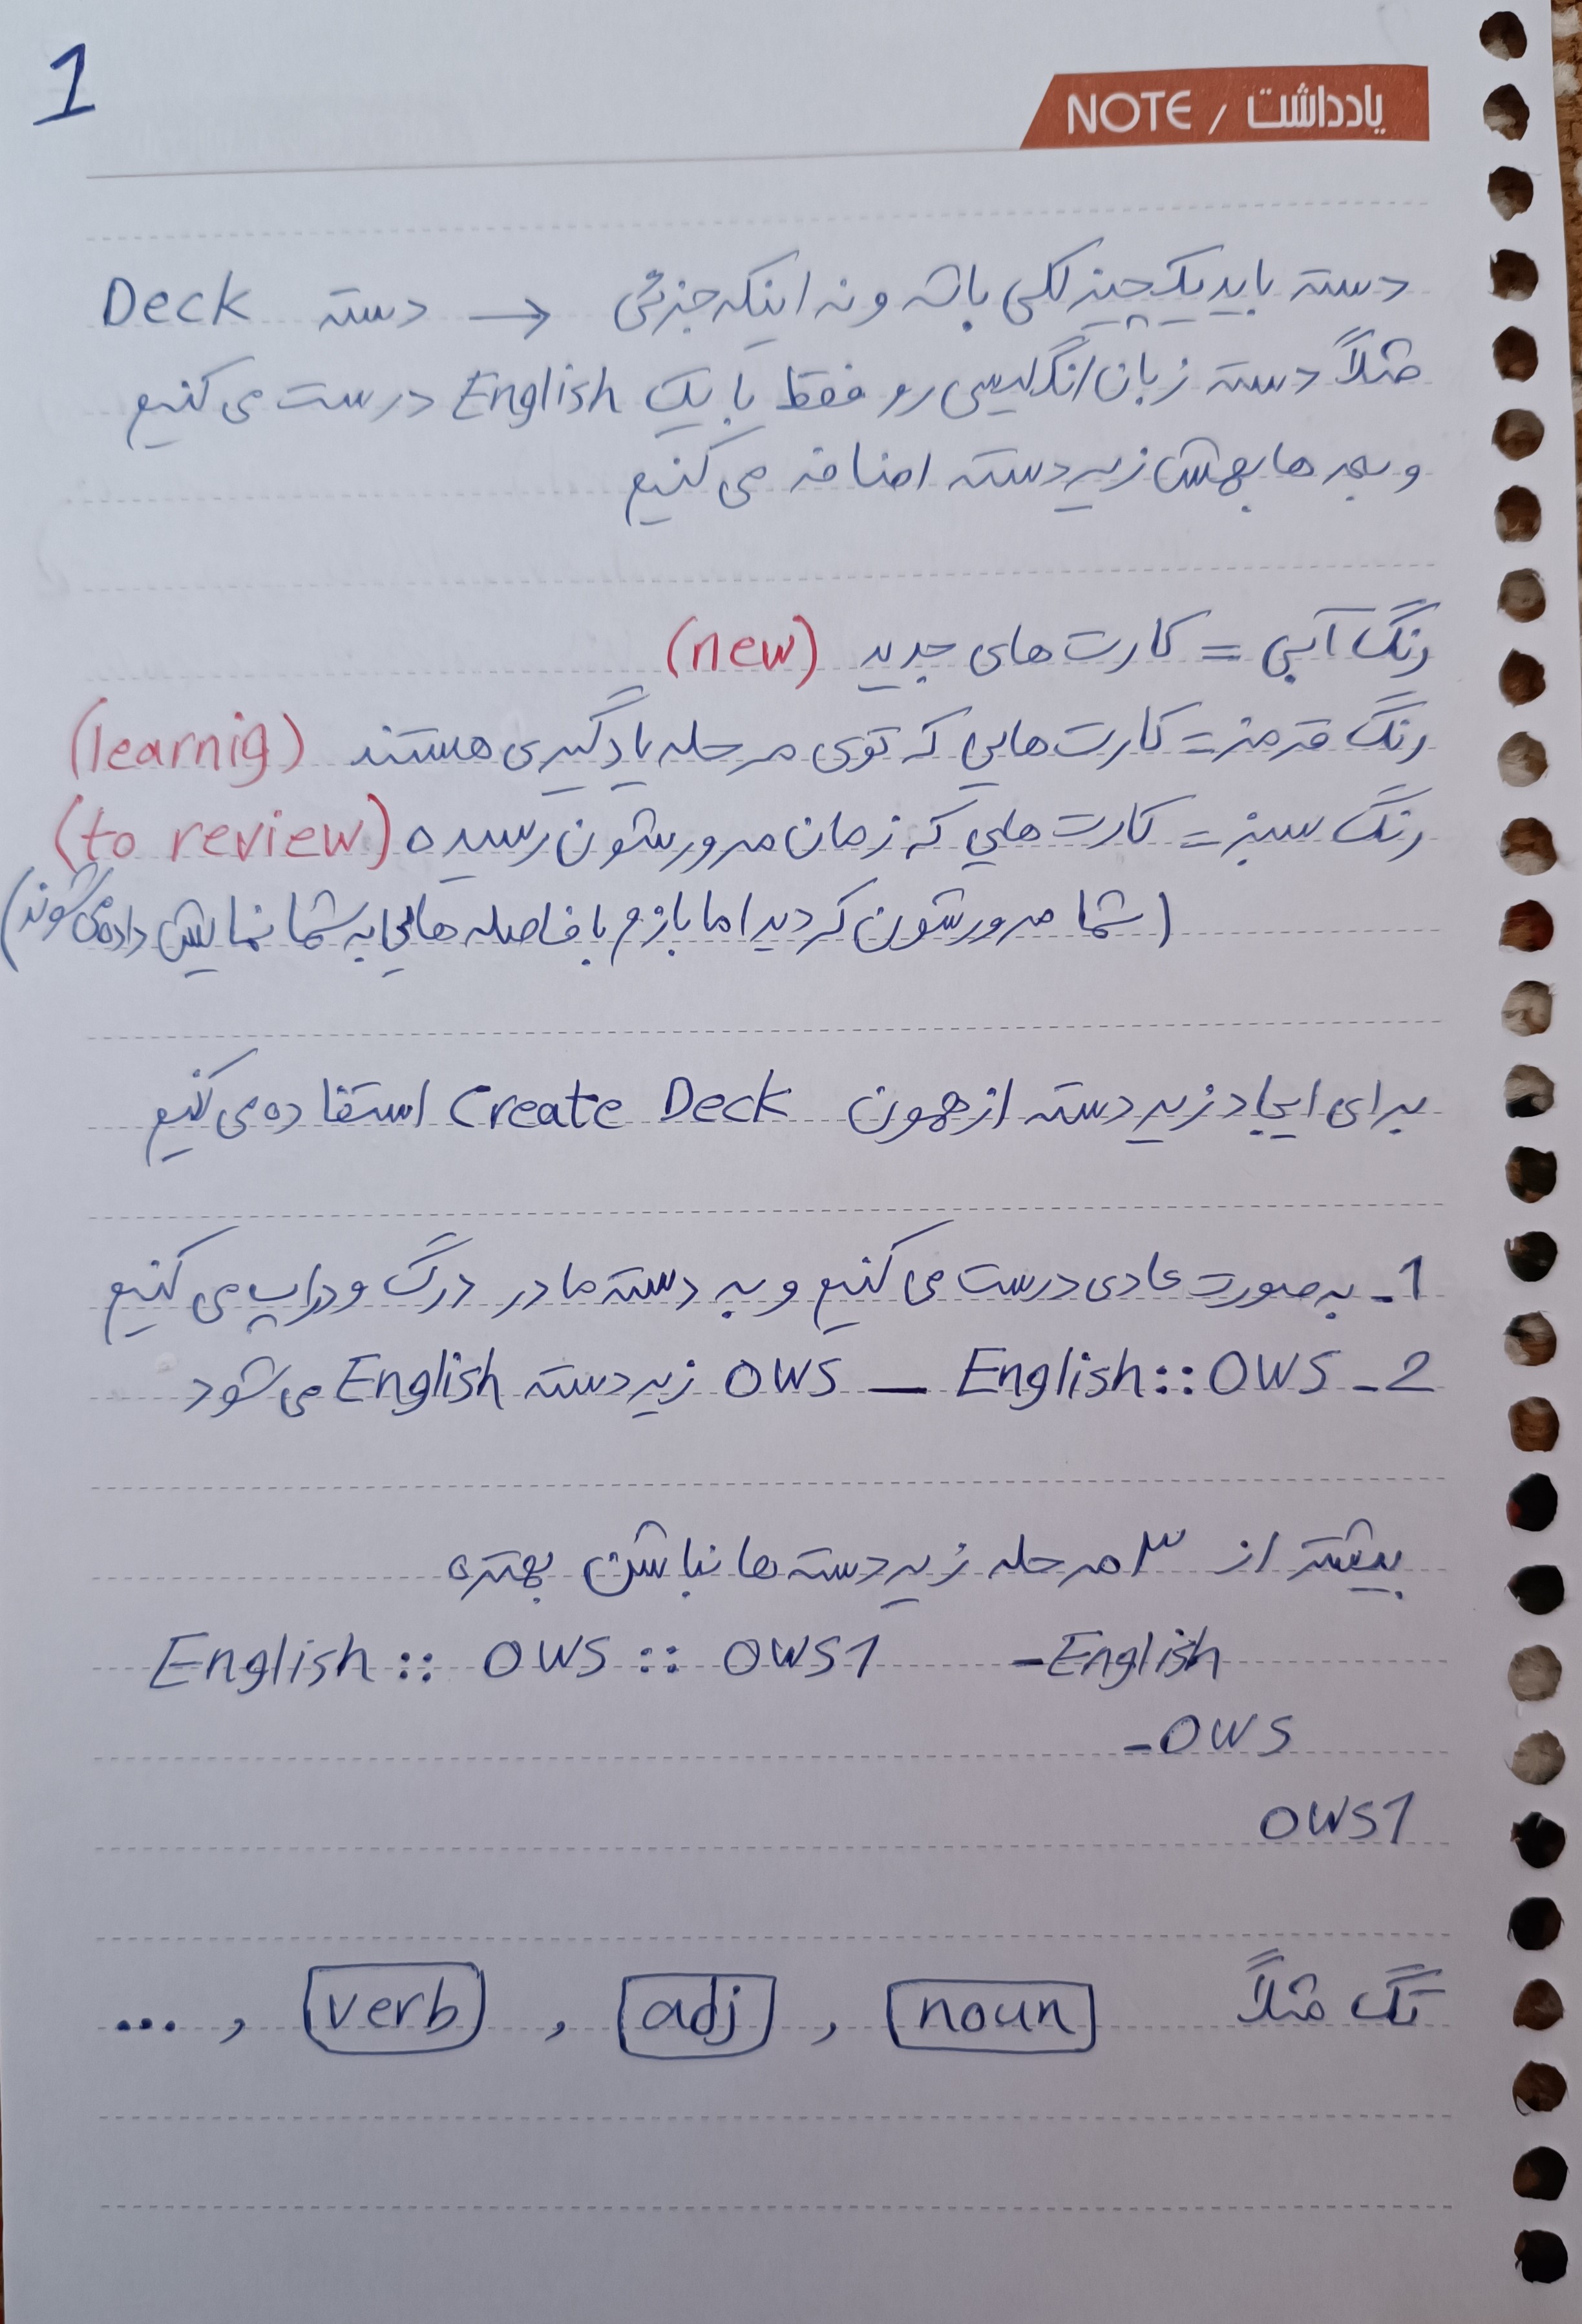 1
یادداشت / NOTE
دسته باید یک چیز کلی باشه و نه اینکه جزئی → دسته Deck
مثلاً دسته زبان انگلیسی رو فقط با یک English درست می کنیم
و بعدها بهش زیردسته اضافه می کنیم
رنگ آبی = کارت های جدید (new)
رنگ قرمز = کارت هایی که توی مرحله یادگیری هستند (learnig)
رنگ سبز = کارت هایی که زمان مرورشون رسیده (to review)
(شما مرورشون کردید اما بازم با فاصله هایی به شما نمایش داده می شوند)
برای ایجاد زیردسته از همون Create Deck استفاده می کنیم
1- به صورت عادی درست می کنیم و به دسته مادر درگ و دراپ می کنیم
2- English::OWS — OWS زیردسته English می شود
بیشتر از ۳ مرحله زیردسته ها نباشن بهتره
English :: OWS :: OWS1 -English
-OWS
OWS1
تگ مثلاً noun , adj , verb , ...